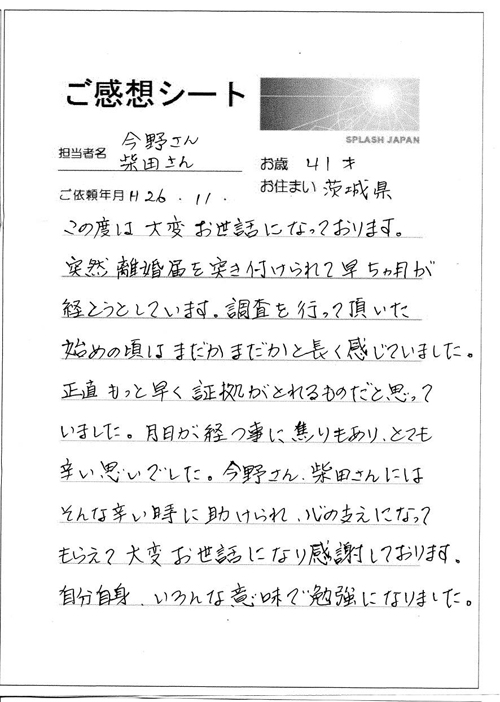 ご感想シート
SPLASH JAPAN
担当者名 今野さん
柴田さん
お歳 41才
ご依頼年月 H26.11.
お住まい 茨城県
この度は大変お世話になっております。
突然離婚届を突き付けられて早5ヵ月が
経とうとしています。調査を行って頂いた
始めの頃はまだかまだかと長く感じていました。
正直もっと早く証拠がとれるものだと思って
いました。月日が経つ事に焦りもあり、とても
辛い思いでした。今野さん、柴田さんには
そんな辛い時に助けられ、心の支えになって
もらえて大変お世話になり感謝しております。
自分自身、いろんな意味で勉強になりました。